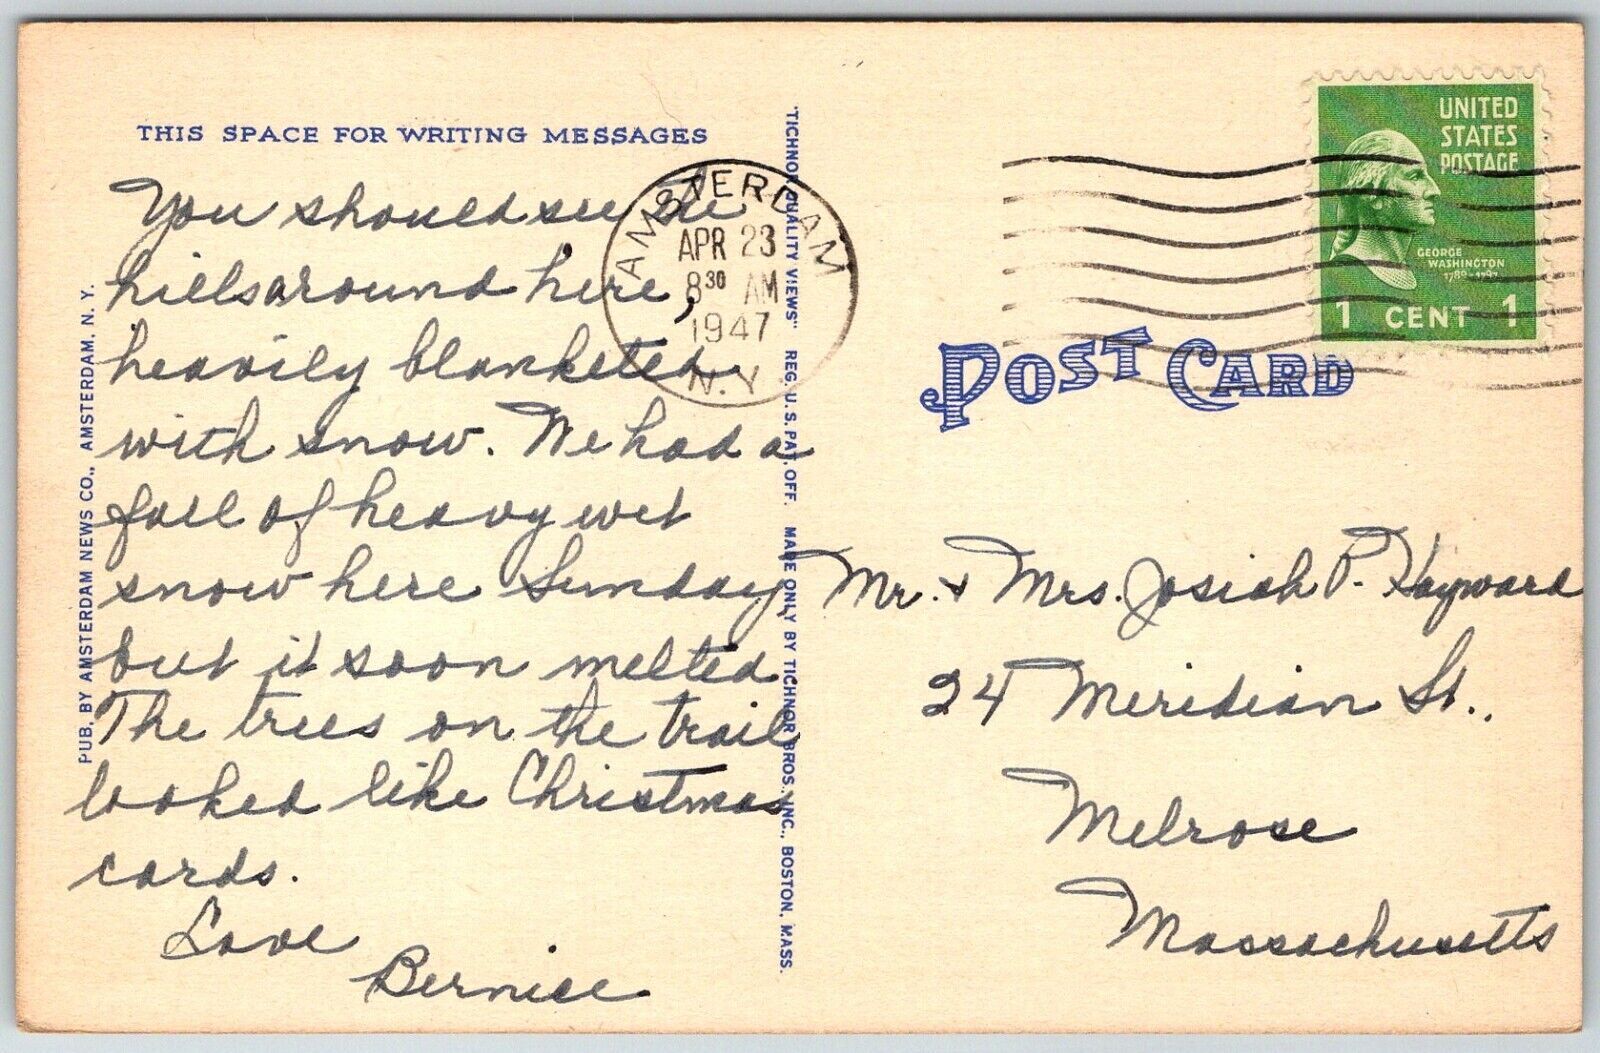 THIS SPACE FOR WRITING MESSAGES
You should see the
hills around here,
heavily blanketed
with snow. We had a
fall of heavy wet
snow here Sunday
but it soon melted.
The trees on the trail
looked like Christmas
cards.
Love
Bernice
PUB. BY AMSTERDAM NEWS CO., AMSTERDAM, N. Y.
AMSTERDAM
APR 23
8 30 AM
1947
N.Y.
"TICHNOR QUALITY VIEWS" REG. U. S. PAT. OFF. MADE ONLY BY TICHNOR BROS., INC., BOSTON, MASS.
UNITED
STATES
POSTAGE
GEORGE
WASHINGTON
1789-1797
1 CENT 1
POST CARD
Mr. & Mrs. Josiah P. Hayward
24 Meridian St.,
Melrose
Massachusetts